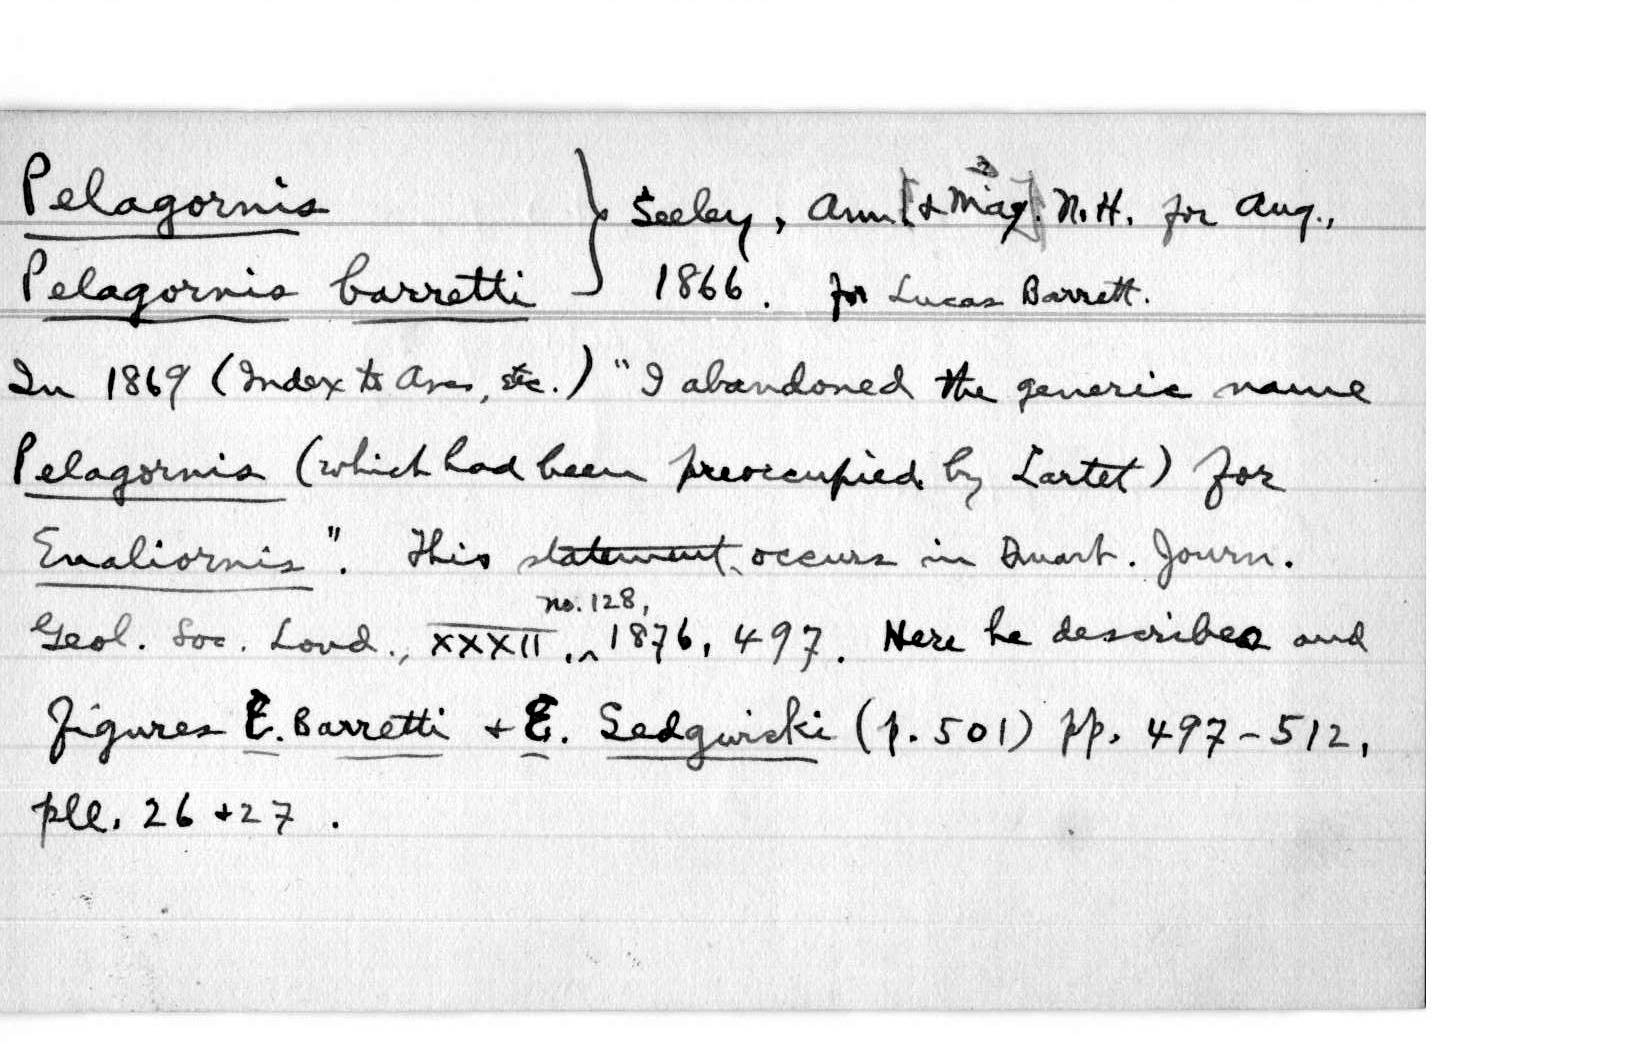 Pelagornis } Seeley, Ann [& Mag]. N.H. for Aug.,
Pelagornis barretti 1866. for Lucas Barrett.
In 1869 (Index to Aves, etc.) "I abandoned the generic name
Pelagornis (which had been preoccupied by Lartet) for
Enaliornis". This statement occurs in Quart. Journ.
no. 128,
Geol. Soc. Lond., XXXII, ^ 1876, 497. Here he describes and
figures E. Barretti + E. Sedgwicki (p. 501) pp. 497-512,
pll. 26 + 27.